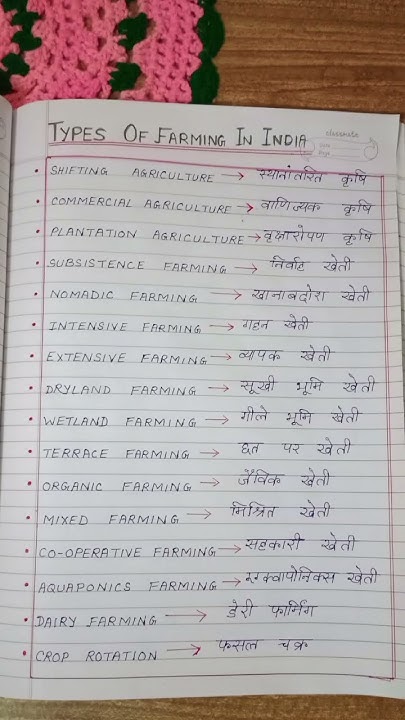 classmate
TYPES OF FARMING IN INDIA
• SHIFTING AGRICULTURE → स्थानांतरित कृषि
• COMMERCIAL AGRICULTURE → वाणिज्यक कृषि
• PLANTATION AGRICULTURE → वृक्षारोपण कृषि
• SUBSISTENCE FARMING → निर्वाह खेती
• NOMADIC FARMING → खानाबदोश खेती
• INTENSIVE FARMING → गहन खेती
• EXTENSIVE FARMING → व्यापक खेती
• DRYLAND FARMING → सूखी भूमि खेती
• WETLAND FARMING → गीले भूमि खेती
• TERRACE FARMING → छत पर खेती
• ORGANIC FARMING → जैविक खेती
• MIXED FARMING → मिश्रित खेती
• CO-OPERATIVE FARMING → सहकारी खेती
• AQUAPONICS FARMING → एक्वापोनिक्स खेती
• DAIRY FARMING → डेरी फार्मिंग
• CROP ROTATION → फसल चक्र